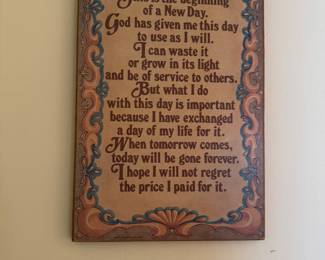 This is the beginning
of a New Day.
God has given me this day
to use as I will.
I can waste it
or grow in its light
and be of service to others.
But what I do
with this day is important
because I have exchanged
a day of my life for it.
When tomorrow comes,
today will be gone forever.
I hope I will not regret
the price I paid for it.